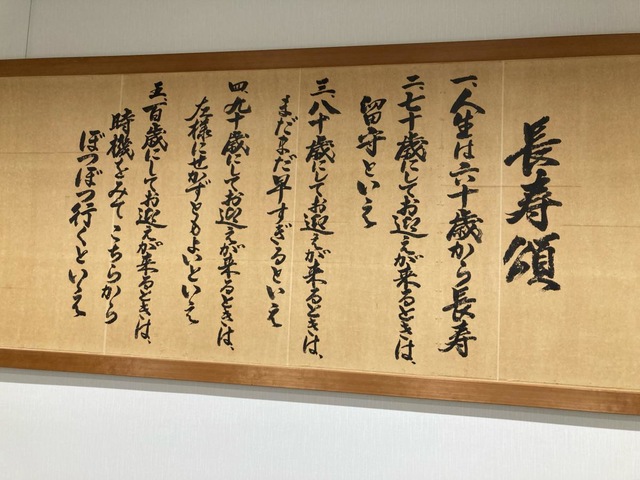 長寿頌
一、人生は六十歳から長寿
二、七十歳にしてお迎えが来るときは、
留守といえ
三、八十歳にしてお迎えが来るときは、
まだまだ早すぎるといえ
四、九十歳にしてお迎えが来るときは、
左様にせかずともよいといえ
五、百歳にしてお迎えが来るときは、
時機をみてこちらから
ぼつぼつ行くといえ